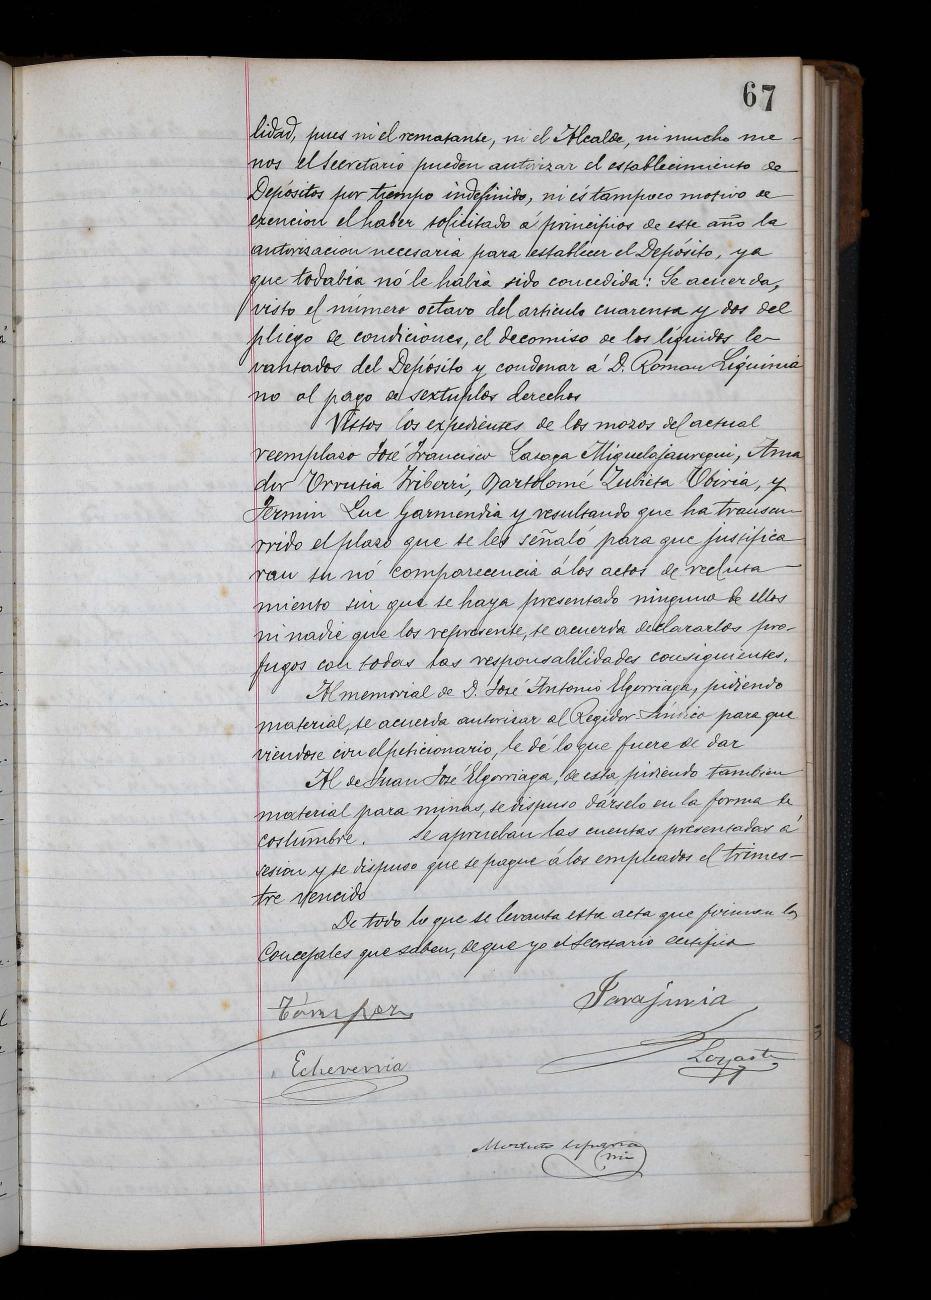 67
lidad, pues ni el rematante, ni el Alcalde, ni mucho me-
nos el Secretario pueden autorizar el establecimiento de
Depósitos por tiempo indefinido, ni és tampoco motivo de
exencion el haber solicitado á principios de este año la
autorizacion necesaria para establecer el Depósito, ya
que todabia nó le habia sido concedida: Se acuerda,
visto el número octavo del articulo cuarenta y dos del
pliego de condiciones, el decomiso de los liquidos le-
vantados del Depósito y condenar á D. Roman Liquinia
no al pago de sextuplos derechos
Vistos los expedientes de los mozos del actual
reemplazo José Francisco Lasaga Miquelajauregui, Ama
dor Urrutia Iriberri, Bartolomé Zubieta Obiria, y
Fermin Luc Garmendia y resultando que ha transcu-
rrido el plazo que se les señaló para que justifica
ran su nó comparecencia á los actos de recluta-
miento sin que se haya presentado ninguno de ellos
ni nadie que los represente, se acuerda declararlos pro-
fugos con todas las responsabilidades consiguientes.
Al memorial de D. José Antonio Elgorriaga, pidiendo
material, se acuerda autorizar al Regidor Síndico para que
viendose con el peticionario, le dé lo que fuere de dar
Al de Juan José Elgorriaga, de esta, pidiendo tambien
material para minas, se dispuso dárselo en la forma de
costumbre. Se aprueban las cuentas presentadas á
sesion y se dispuso que se pague á los empleados el trimes-
tre vencido
De todo lo que se levanta esta acta que firman los
Concejales que saben, de que yo el Secretario certifico
Echeverria